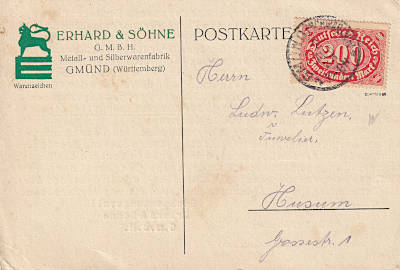 ERHARD & SÖHNE
G. M. B. H.
Metall- und Silberwarenfabrik
GMÜND (Württemberg)
Warenzeichen
POSTKARTE
Deutsches Reich
200
Zweihundert Mark
Herrn
Ludw. Lutzen,
Juwelier,
Husum
Gossestr. 1